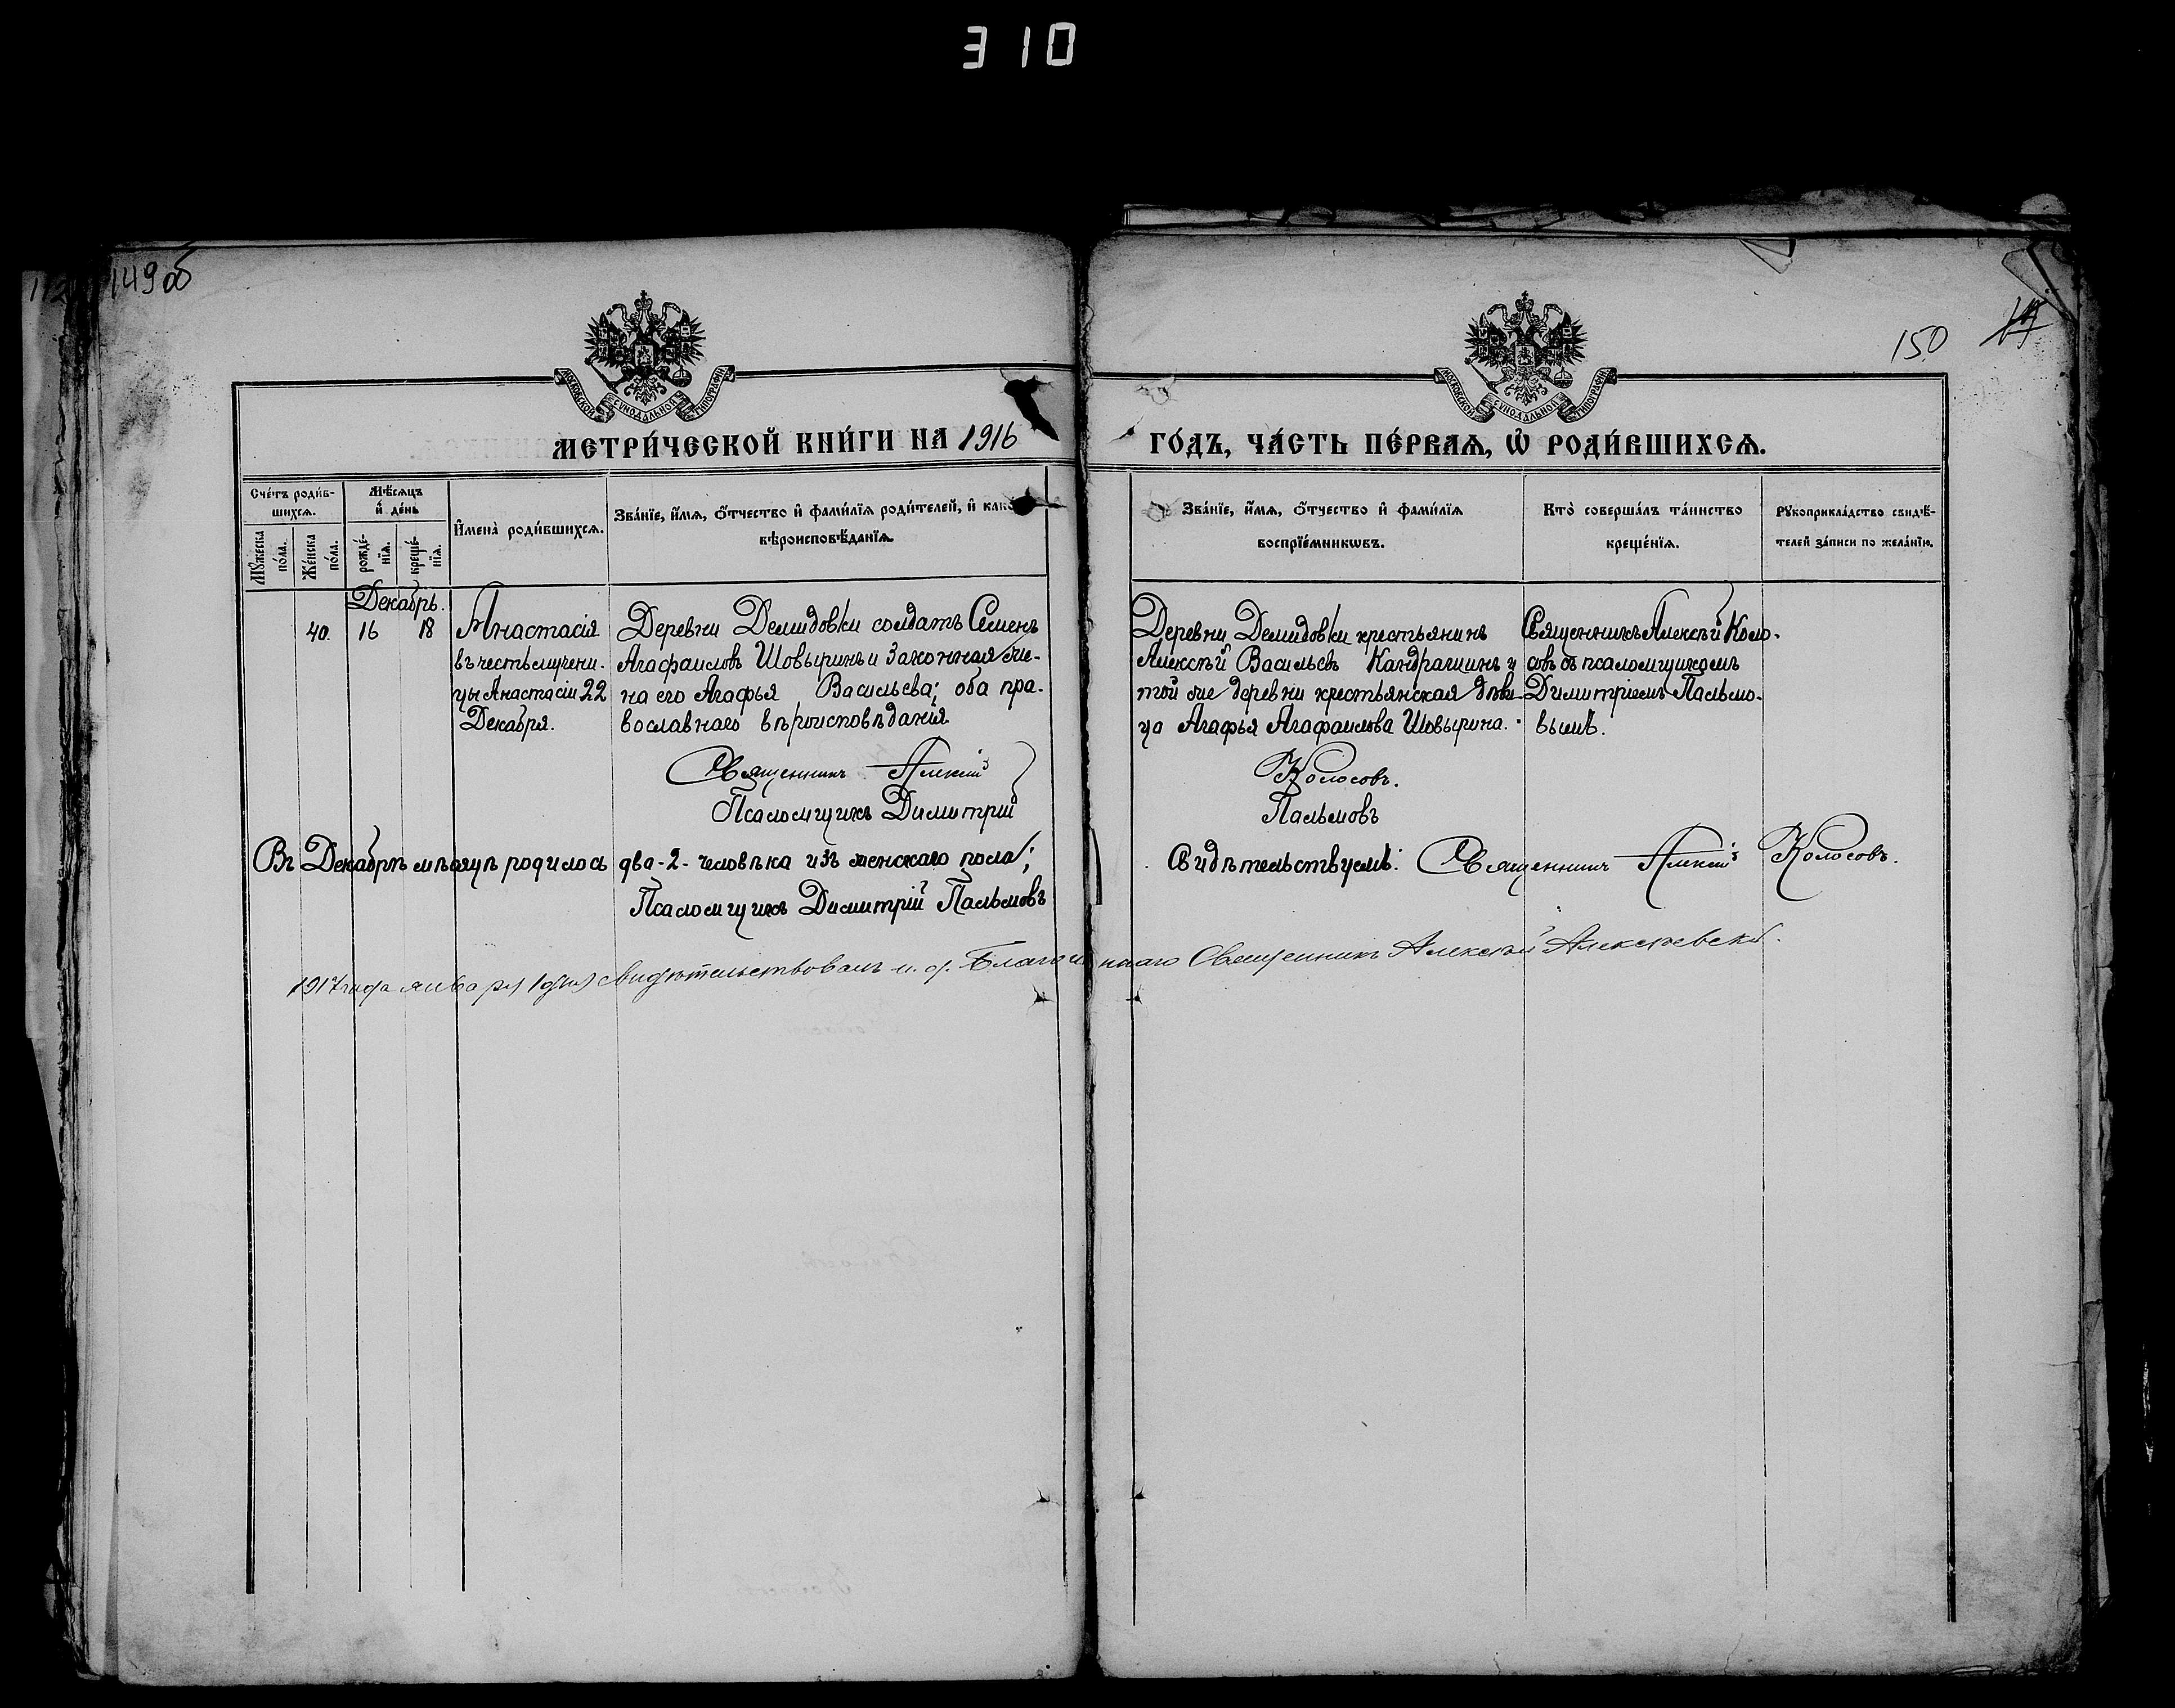 310
149об
150
17
МОСКОВСКОЙ СУНОДАЛЬНОЙ ТИПОГРАФІИ
МОСКОВСКОЙ СУНОДАЛЬНОЙ ТИПОГРАФІИ
МЕТРИ́ЧЕСКОЙ КНИ́ГИ НА 1916 ГО́ДЪ, ЧА́СТЬ ПЕ́РВАѦ, Ѡ҆ РОДИ́ВШИХСѦ.
Сче́тъ роди́в-
шихсѧ.
Мꙋ́жеска по́ла.
Же́нска по́ла.
Мѣ́сѧцъ
и҆ де́нь
рожде́-
нїѧ.
креще́-
нїѧ.
И҆мена̀ роди́вшихсѧ.
Зва́нїе, и҆́мѧ, ѻ҆́тчество и҆ фами́лїѧ роди́телей, и҆ како
вѣроисповѣ́данїѧ.
Зва́нїе, и҆́мѧ, ѻ҆́тчество и҆ фами́лїѧ
воспрїе́мникѡвъ.
Кто̀ соверша́лъ та́инство
креще́нїѧ.
Рꙋкоприкла́дство свидѣ́-
телей за́писи по жела́нїю.
Декабрь.
40. 16 18
Анастасія
въ честь мучени-
цы Анастасіи 22
Декабря.
Деревни Демидовки солдатъ Семенъ
Агафаиловъ Шовыринъ и законная же-
на его Агафья Васильева; оба пра-
вославнаго вѣроисповѣданія.
Деревни Демидовки крестьянинъ
Алексѣй Васильевъ Кандрашинъ и
той же деревни крестьянская дѣви-
ца Агафья Агафаилова Шовырина.
Священникъ Алексѣй Коло-
совъ съ псаломщикомъ
Димитріемъ Пальмо-
вымъ.
Священникъ Алексій Колосовъ.
Псаломщикъ Димитрій Пальмовъ
Въ Декабрѣ мѣсяцѣ родилось два-2-человѣка изъ женскаго пола;
Свидѣтельствуемъ: Священникъ Алексій Колосовъ.
Псаломщикъ Димитрій Пальмовъ
1917 года января 1 дня свидѣтельствовалъ и. д. Благочиннаго Священникъ Алексѣй